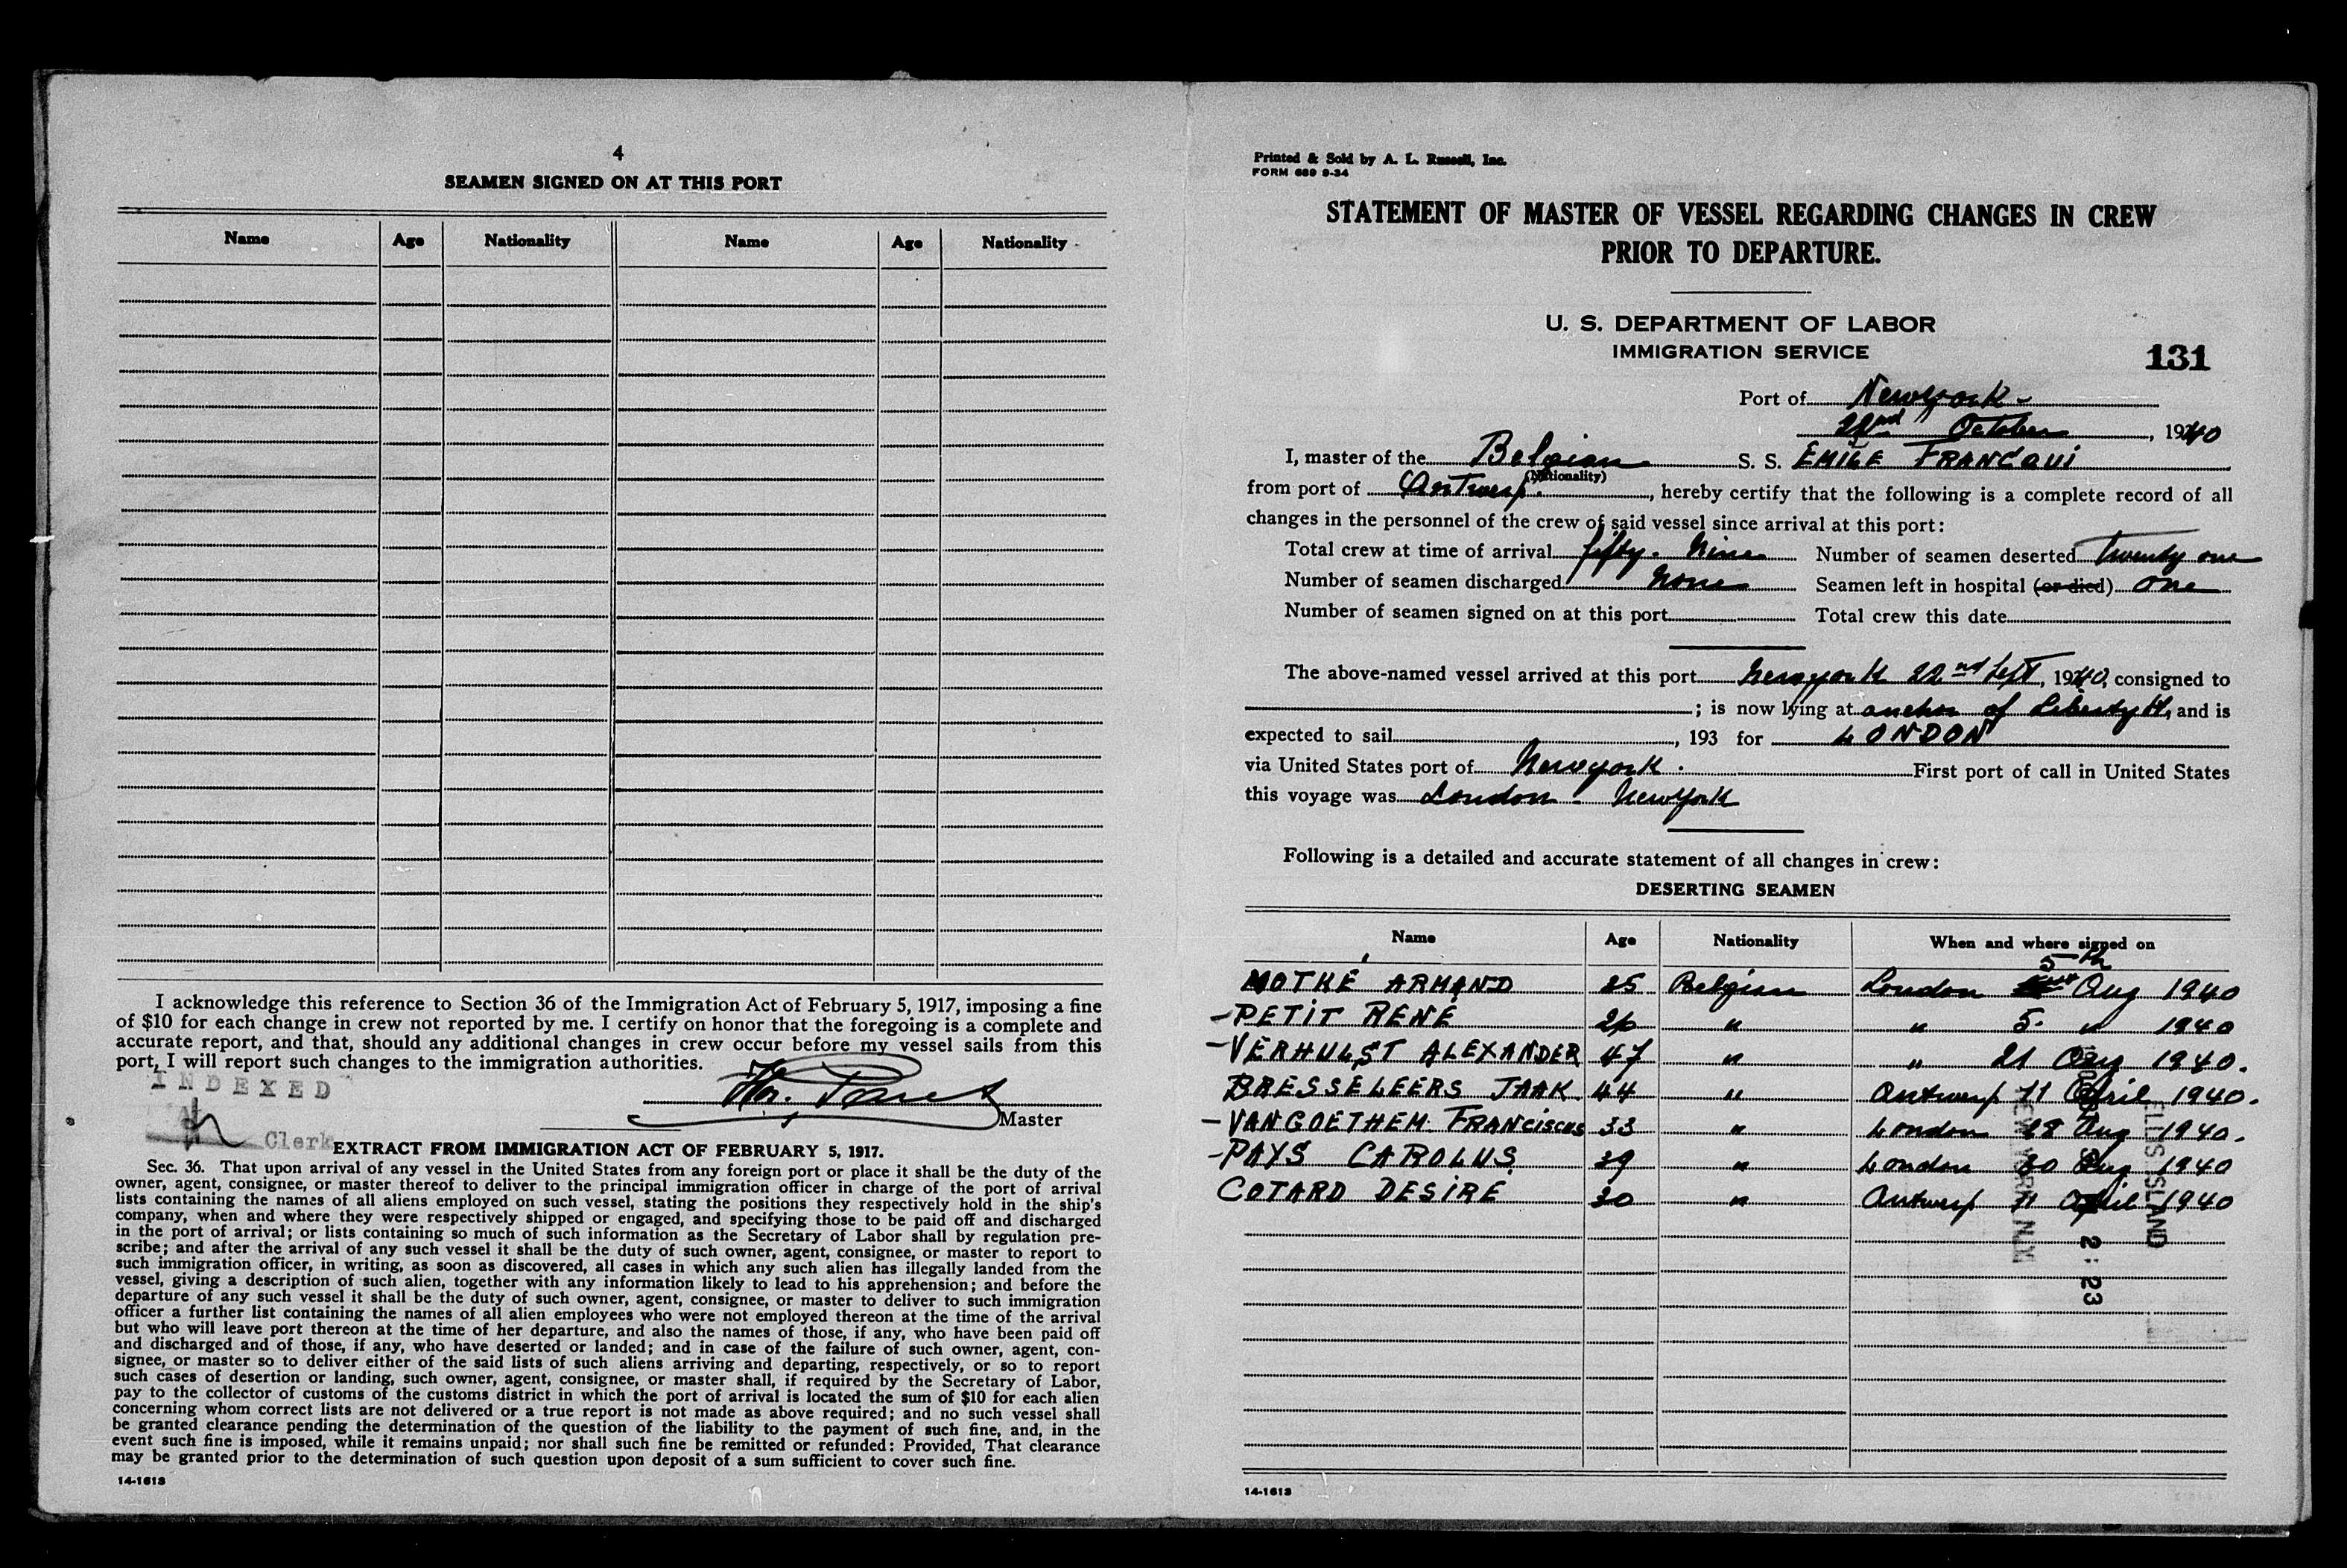 4
SEAMEN SIGNED ON AT THIS PORT
Name Age Nationality Name Age Nationality
I acknowledge this reference to Section 36 of the Immigration Act of February 5, 1917, imposing a fine
of $10 for each change in crew not reported by me. I certify on honor that the foregoing is a complete and
accurate report, and that, should any additional changes in crew occur before my vessel sails from this
port, I will report such changes to the immigration authorities.
INDEXED
Master
Clerk
EXTRACT FROM IMMIGRATION ACT OF FEBRUARY 5, 1917.
Sec. 36. That upon arrival of any vessel in the United States from any foreign port or place it shall be the duty of the
owner, agent, consignee, or master thereof to deliver to the principal immigration officer in charge of the port of arrival
lists containing the names of all aliens employed on such vessel, stating the positions they respectively hold in the ship's
company, when and where they were respectively shipped or engaged, and specifying those to be paid off and discharged
in the port of arrival; or lists containing so much of such information as the Secretary of Labor shall by regulation pre-
scribe; and after the arrival of any such vessel it shall be the duty of such owner, agent, consignee, or master to report to
such immigration officer, in writing, as soon as discovered, all cases in which any such alien has illegally landed from the
vessel, giving a description of such alien, together with any information likely to lead to his apprehension; and before the
departure of any such vessel it shall be the duty of such owner, agent, consignee, or master to deliver to such immigration
officer a further list containing the names of all alien employees who were not employed thereon at the time of the arrival
but who will leave port thereon at the time of her departure, and also the names of those, if any, who have been paid off
and discharged and of those, if any, who have deserted or landed; and in case of the failure of such owner, agent, con-
signee, or master so to deliver either of the said lists of such aliens arriving and departing, respectively, or so to report
such cases of desertion or landing, such owner, agent, consignee, or master shall, if required by the Secretary of Labor,
pay to the collector of customs of the customs district in which the port of arrival is located the sum of $10 for each alien
concerning whom correct lists are not delivered or a true report is not made as above required; and no such vessel shall
be granted clearance pending the determination of the question of the liability to the payment of such fine, and, in the
event such fine is imposed, while it remains unpaid; nor shall such fine be remitted or refunded: Provided, That clearance
may be granted prior to the determination of such question upon deposit of a sum sufficient to cover such fine.
14-1613
Printed & Sold by A. L. Russell, Inc.
FORM 689 9-34
STATEMENT OF MASTER OF VESSEL REGARDING CHANGES IN CREW
PRIOR TO DEPARTURE.
U. S. DEPARTMENT OF LABOR
IMMIGRATION SERVICE
131
Port of Newyork
22nd October, 1940
I, master of the Belgian S. S. EMILE FRANCQUI
(Nationality)
from port of Antwerp., hereby certify that the following is a complete record of all
changes in the personnel of the crew of said vessel since arrival at this port:
Total crew at time of arrival fifty. Nine Number of seamen deserted Twenty one
Number of seamen discharged None Seamen left in hospital (or died) one
Number of seamen signed on at this port Total crew this date
The above-named vessel arrived at this port Newyork 22nd Sept, 1940, consigned to
; is now lying at anchor of Liberty St, and is
expected to sail, 193 for LONDON
via United States port of Newyork. First port of call in United States
this voyage was London - NewYork
Following is a detailed and accurate statement of all changes in crew:
DESERTING SEAMEN
Name Age Nationality When and where signed on
MOTKE ARMAND 25 Belgian London 5th Aug 1940
-PETIT RENÉ 26 " " 5. " 1940
-VERHULST ALEXANDER 47 " " 21 Aug 1940.
BRESSELEERS JAAK. 44 " Antwerp 11 April 1940.
-VANGOETHEM. FRANCISCUS 33 " London 28 Aug 1940.
-PAYS CAROLUS. 39 " London 30 Aug 1940
COTARD DESIRÉ 30 " Antwerp 11 April 1940
ELLIS ISLAND
2:23
NEW YORK N.Y.
14-1613